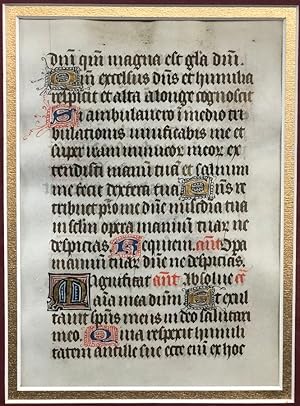 dñi qm̃ magna est gl̃a dñi.
Qm̃ excelsus dñs et humilia
respicit et alta a longe cognoscit
Si ambulavero i medio tri
bulationis vivificabis me et
super iram inimicor meor ex
tendisti manū tuā et salvum
me fecit dextera tua Dñs re
tribuet pro me dñe mis̃cdia tua
in sclm̃ opera manuū tuar ne
despicias. Requiem. añt Opa
manuū tuar dñe ne despicias.
Magnificat añt Absolve
añ
Aīa mea dñm Et exul
tavit sp̃us meus in deo salutari
meo. Quia respexit humili
tatem ancille sue ecce eñi ex hoc